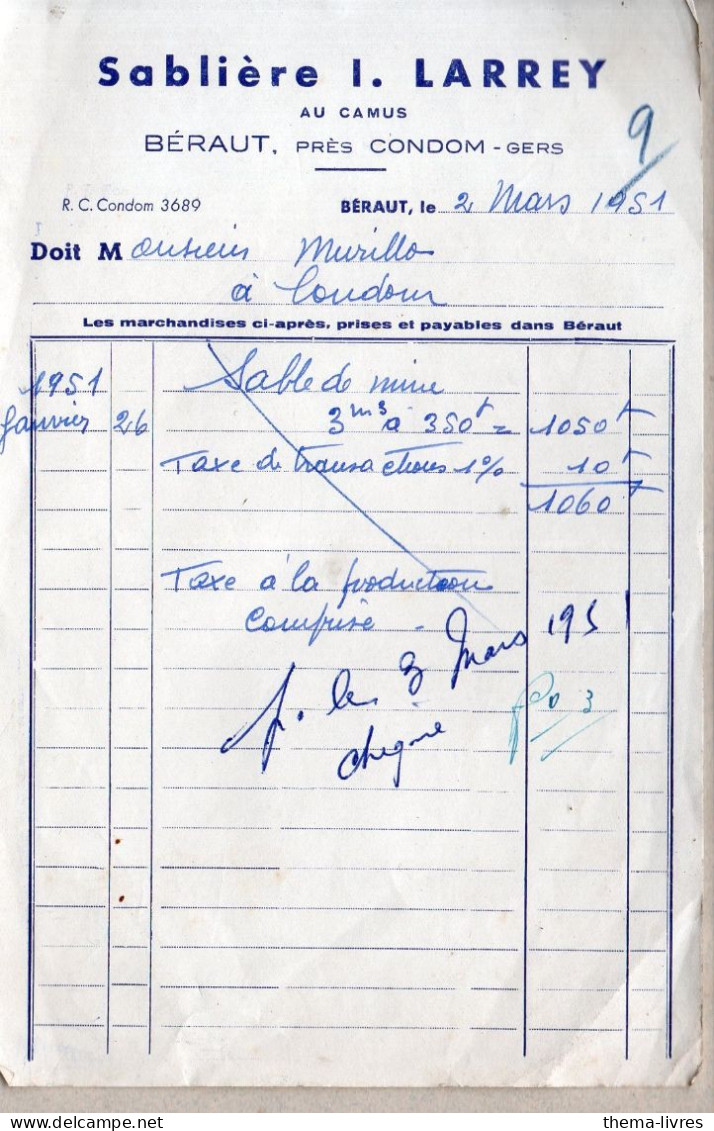 Sablière I. LARREY
AU CAMUS
BÉRAUT, PRÈS CONDOM - GERS
9
R. C. Condom 3689
BÉRAUT, le 2 Mars 1951
Doit Monsieur Murillo
à Condom
Les marchandises ci-après, prises et payables dans Béraut
1951 Sable de mine
Janvier 26 3 m3 à 350f = 1050f
Taxe de transactions 1% 10f
1060f
Taxe à la production
comprise -
p. le 3 Mars 195
chèque
fo 3
thema-livres